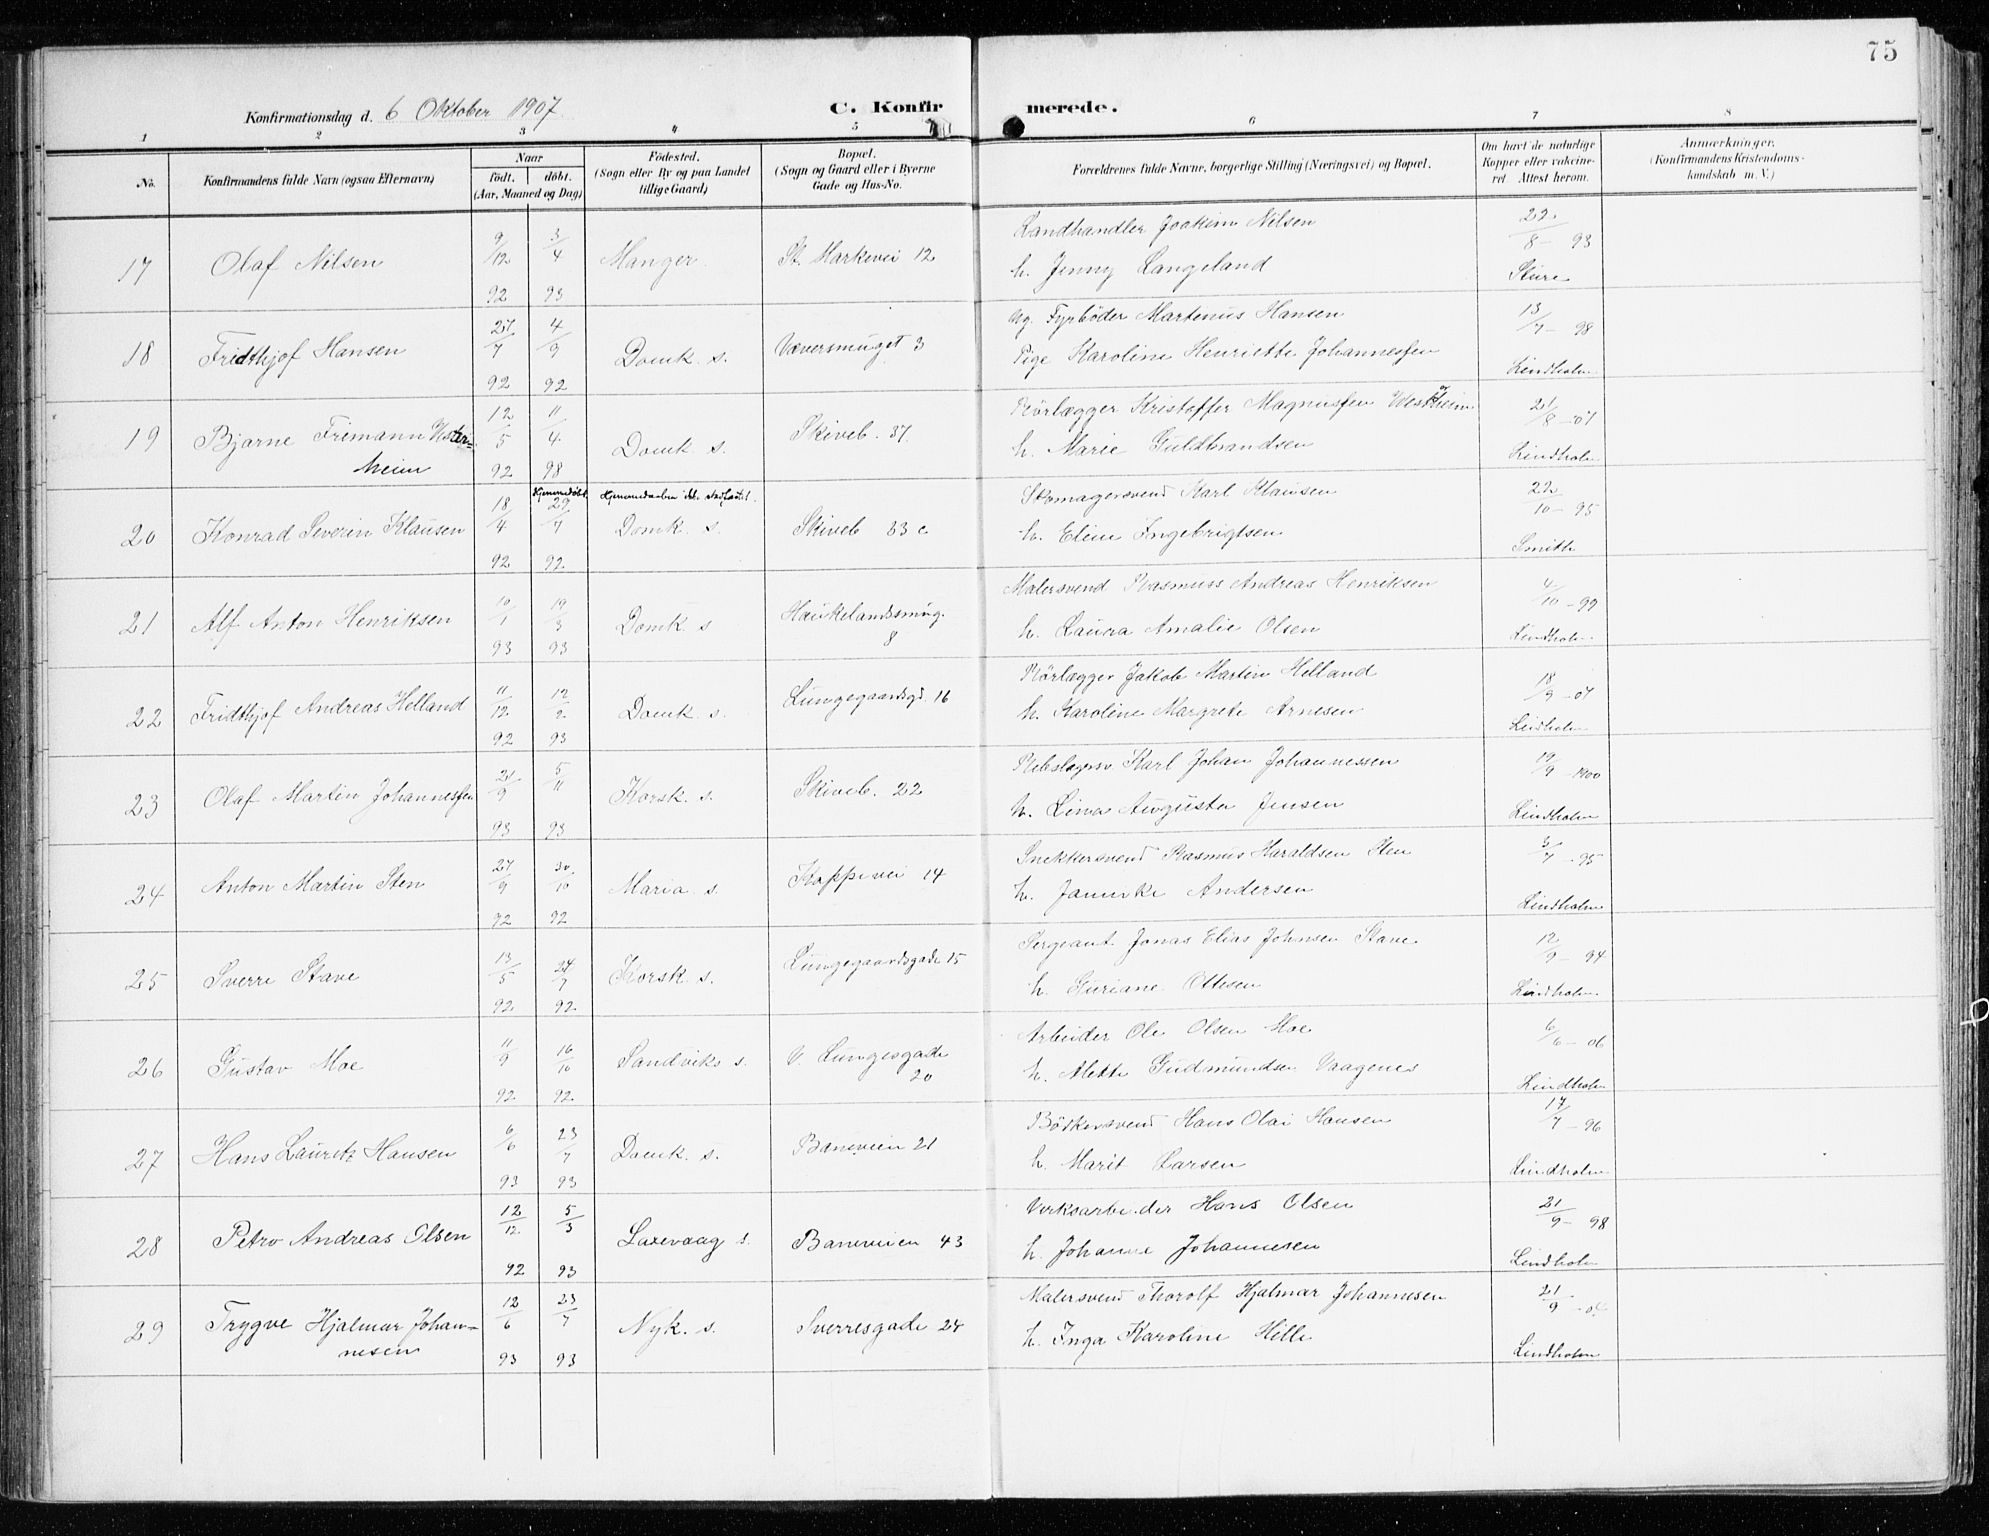 75
Konfirmationsdag d. 6 Oktober 1907.
C. Konfirmerede.
1 2 3 4 5 6 7 8
No.
Konfirmandens fulde Navn (ogsaa Efternavn)
Naar
født. døbt.
(Aar, Maaned og Dag)
Fødested.
(Sogn eller By og paa Landet
tillige Gaard)
Bopæl.
(Sogn og Gaard eller i Byerne
Gade og Hus-No.
Forældrenes fulde Navne, borgerlige Stilling (Næringsvei) og Bopæl.
Om havt de naturlige
Kopper eller vakcine-
ret Attest herom.
Anmærkninger.
(Konfirmandens Kristendoms-
kundskab m. V.)
17 Olaf Nilsen 9/12 92 3/4 93 Manger. St. Markevei 12
Landhandler Joakim Nilsen
h. Jenny Langeland
22/8 - 93
Sture
18 Fridthjof Hansen 27/7 92 4/9 92 Domk. s. Væversmuget 3
Ug. Fyrbøder Martinus Hansen
Pige Karoline Henriette Johannessen
13/7 - 98
Lindholm
19 Bjarne Fremann Vester-
heim 12/5 92 11/4 98 Domk s. Skiveb. 37.
Rørlægger Kristoffer Magnussen Westerheim
h. Marie Guldbrandsen
21/8 - 07
Lindholm
20 Konrad Severin Klausen 18/4 92 Hjemmedøbt 29/7 92 Hjemmedaaben ikke stadfæstet.
Domk. s. Skiveb 33 c
Skomagersvend Karl Klausen
h. Eline Ingebrigtsen
22/10 - 95
Smith
21 Alf Anton Henriksen 10/1 93 19/3 93 Domk. s Haukelandssmug.
8
Malersvend Rasmuss Andreas Henriksen
h. Laura Amalie Olsen
4/10 - 99
Lindholm
22 Fridthjof Andreas Helland 11/12 92 12/2 93 Domk. s. Lungegaardsgd. 16
Rørlægger Jakob Martin Helland
h. Karoline Margrete Arnesen
18/9 - 07
Lindholm
23 Olaf Martin Johannessen 21/9 93 5/11 93 Korsk. s. Skiveb. 22
Rebslagersv Karl Johan Johannessen
h. Lina Augusta Jensen
19/9 - 1900
Lindholm
24 Anton Martin Sten 27/9 92 30/10 92 Maria s. Kappevei 14
Snekkersvend Rasmus Haraldsen Sten
h. Janneke Andersen
3/7 - 95
Lindholm
25 Sverre Stave 13/5 92 24/7 92. Korsk s. Lungegaardsgade 15
Sergeant Jonas Elias Johnsen Stave
h. Guriane Ottesen
12/9 - 94
Lindholm
26 Gustav Moe 11/9 92 16/10 92. Sandviks s. V. Lungesgade
20
Arbeider Ole Olsen Moe
h. Alette Gudmundsen Vaagenes
6/6 - 06
Lindholm
27 Hans Lauritz Hansen 6/6 93 23/7 93 Domk. s. Baneveien 21
Bødkersvend Hans Olai Hansen
h. Marit Larsen
17/7 - 96
Lindholm
28 Petro Andreas Olsen 12/12 92 5/3 93 Laxevaag s. Baneveien 43
Verksarbeider Hans Olsen
h. Johanne Johannesen
21/9 - 98
Lindholm
29 Trygve Hjalmar Johan-
nesen 12/6 93 23/7 93 Nyk. s. Sverresgade 24
Malersvend Thorolf Hjalmar Johannesen
h. Inga Karoline Hille
21/9 - 04
Lindholm